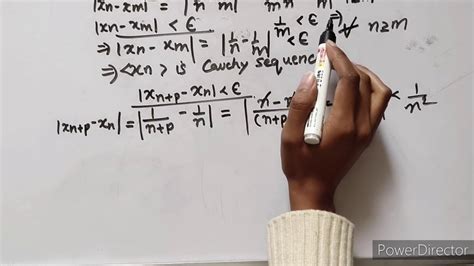 |xn-xm| = | n m|
|xn-xm| < ε 1/m < ε ⇒
⇒ |xn-xm| = |1/n - 1/m| < ε ∀ n≥m
⇒ <xn> is Cauchy sequence
|xn+p - xn| < ε
|xn+p - xn| = |1/n+p - 1/n| = | n - (n+p) < 1/n²
PowerDirector